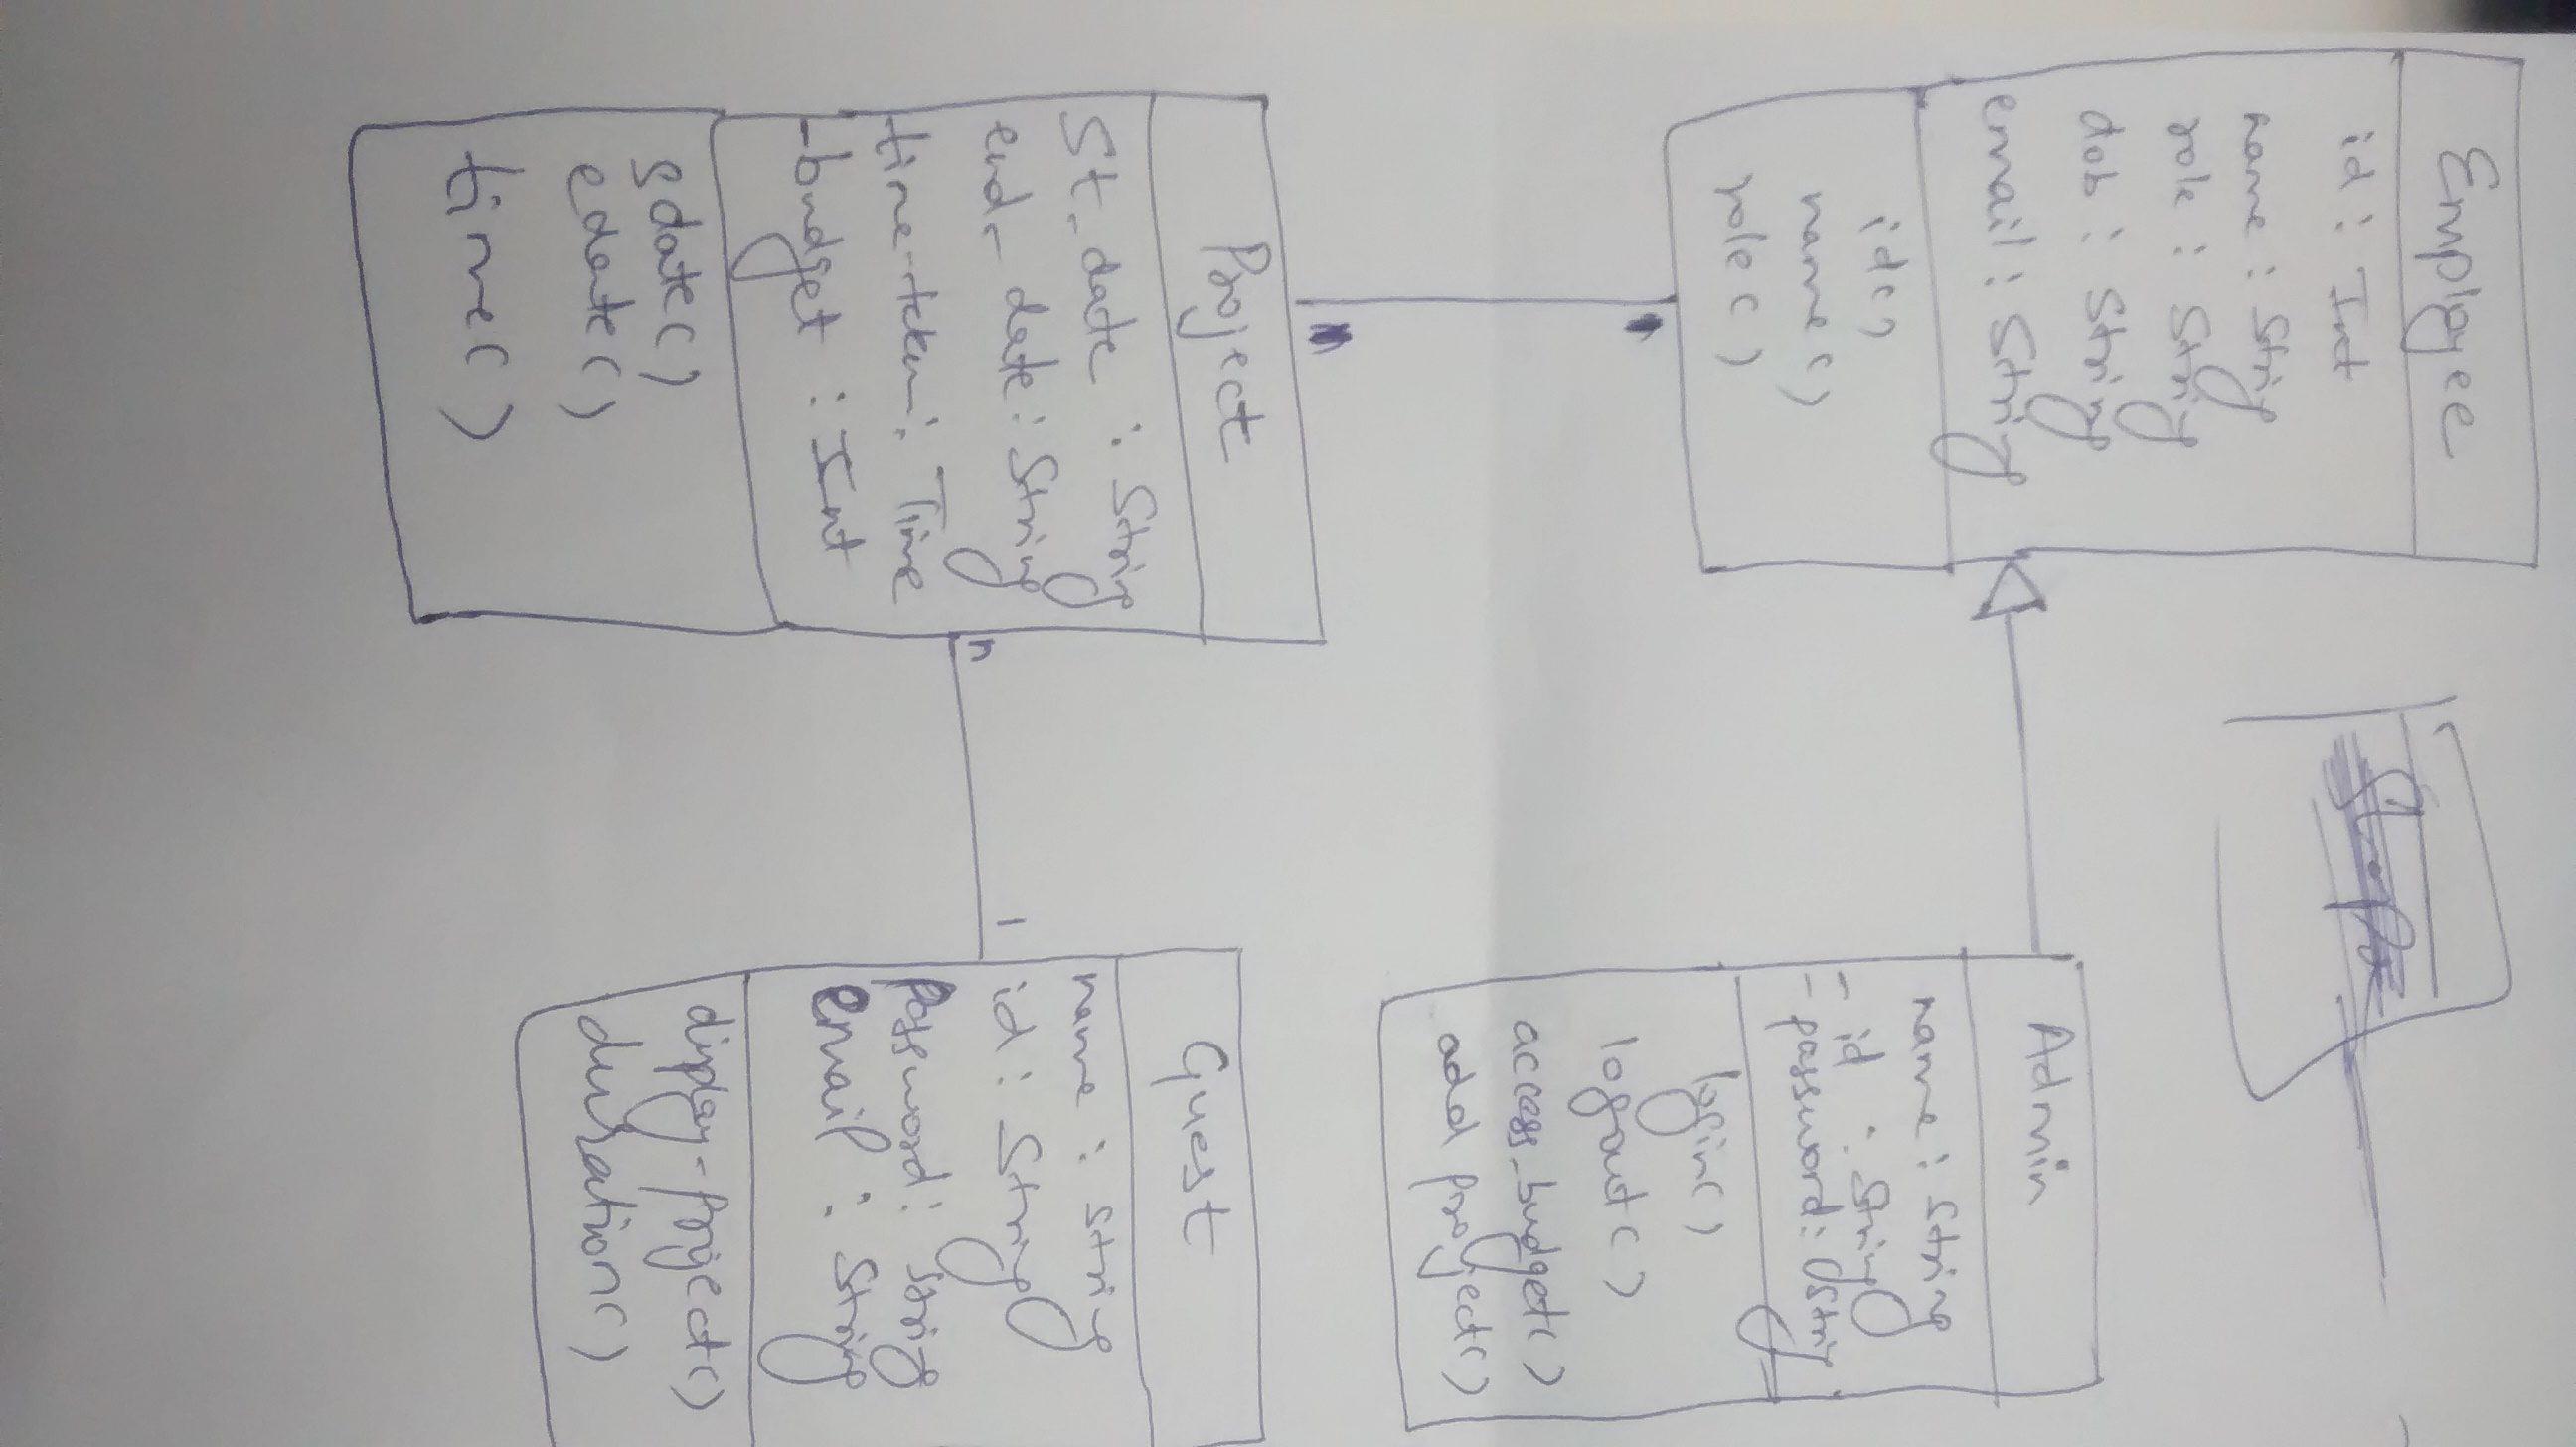 Employee
id : Int
name : String
role : String
dob : String
email : String
id()
name()
role()
Admin
name : String
- id : String
- password : String
login()
logout()
access_budget()
add project()
Project
St_date : String
end_date : String
time-taken : Time
-budget : Int
sdate()
edate()
time()
n
1
Guest
name : String
id : String
Password : String
email : String
display-project()
duration()